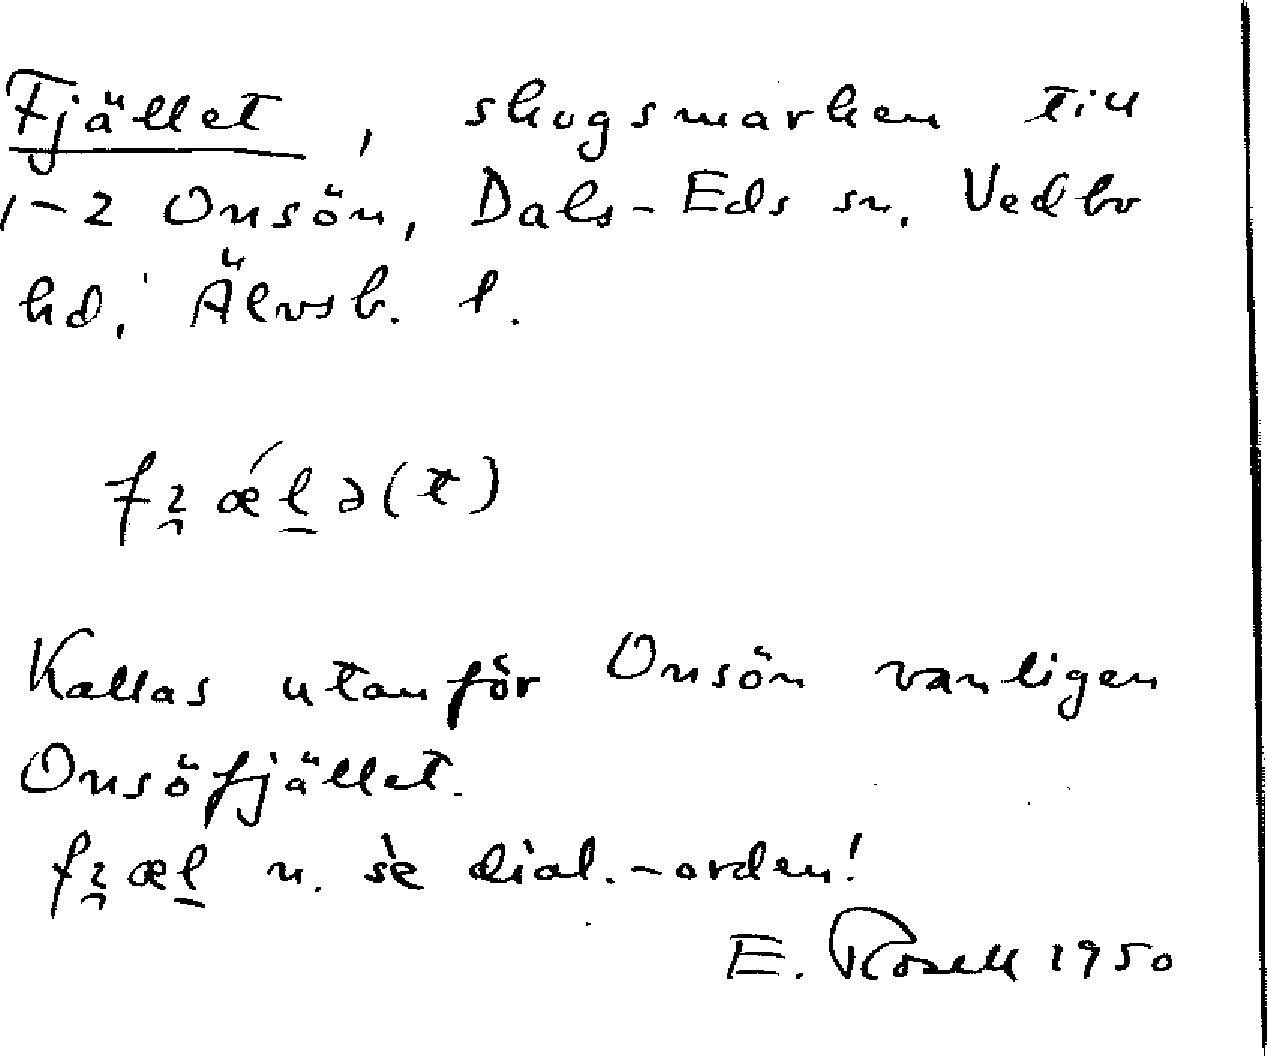 Fjället, skogsmarken till
1-2 Onsön, Dals-Eds sn, Vedbo
hd, Älvsb. l.
fʒ̯ǽl̠ə(t)
Kallas utanför Onsön vanligen
Onsöfjället.
fʒ̯æl̠ n. se dial.-orden!
E. Rosell 1950